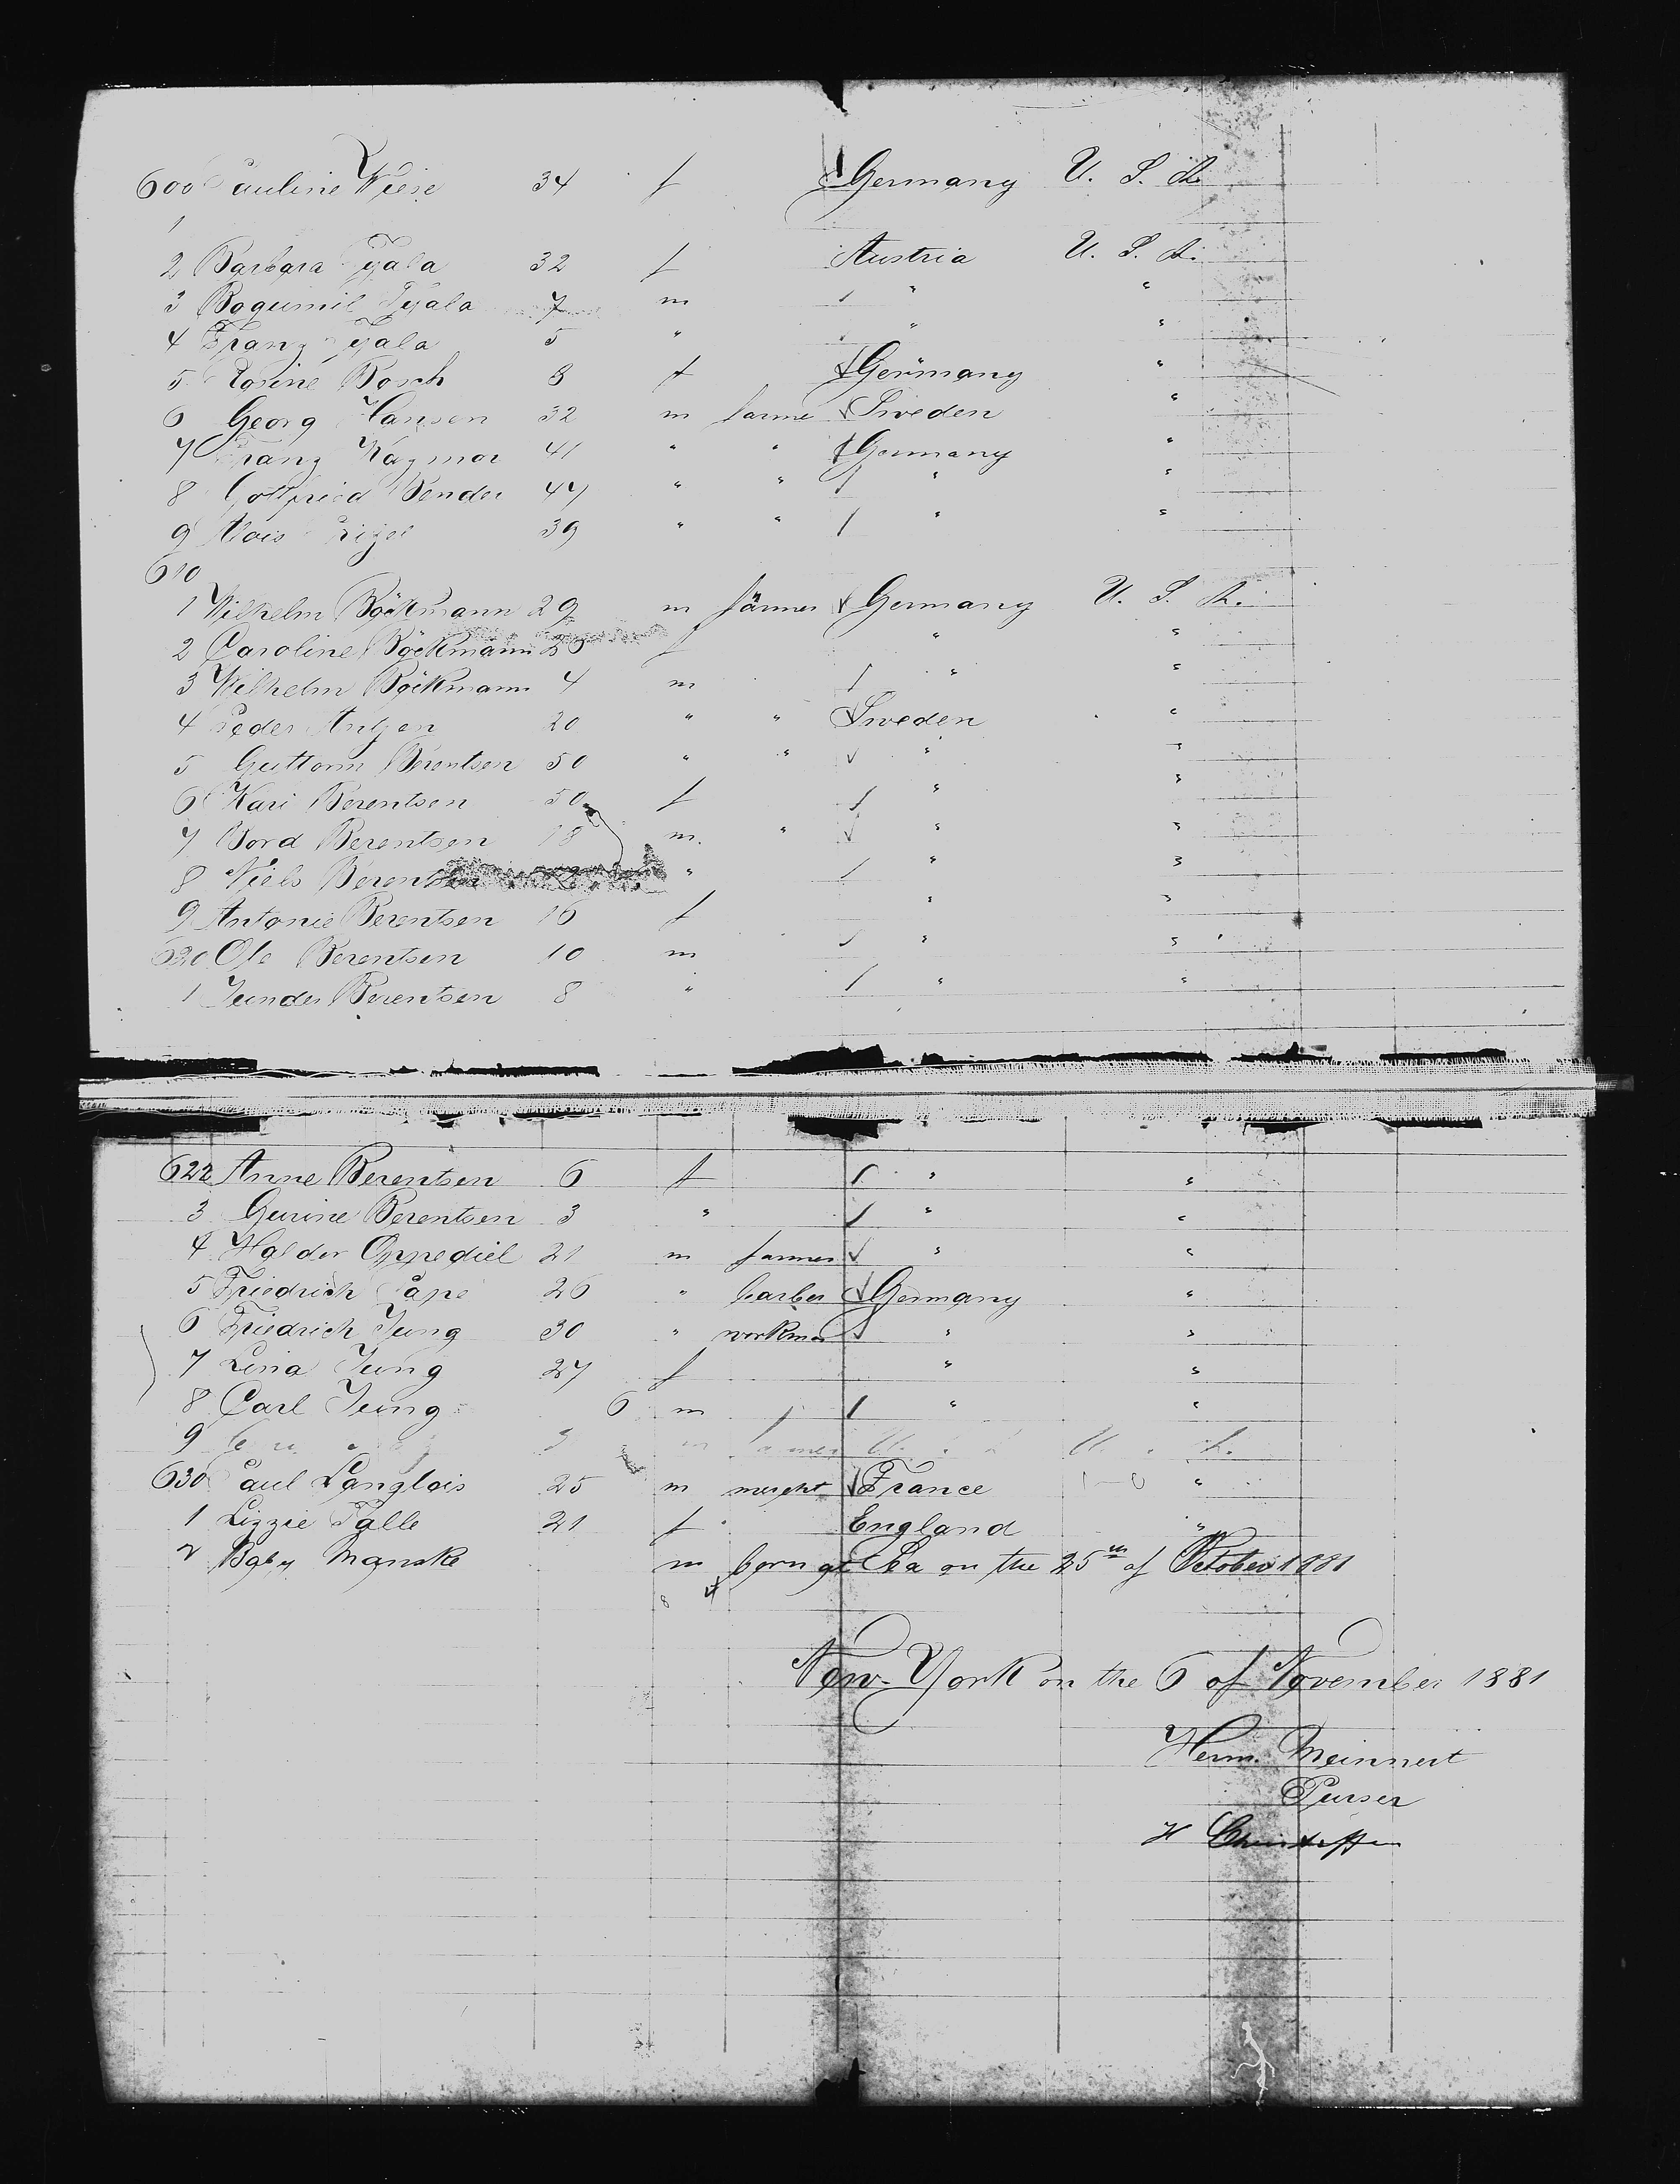 600 Pauline Wiese 34 f Germany U. S. A.
1
2 Barbara Fyala 32 f Austria U. S. A.
3 Bogumil Fyala 7 m " "
4 Franz Fyala 5 " " "
5 Rosine Bosch 8 f Germany "
6 Georg Hansen 32 m farme Sweden "
7 Franz 41 " " Germany "
8 Gottfried Bender 47 " " " "
9 Alois 39 " " " "
610
1 Wilhelm Böckmann 29 m farmer Germany U. S. A.
2 Caroline Böckmann 26 f " "
3 Wilhelm Böckmann 4 m " "
4 Peder 20 " " Sweden "
5 Guttorm Berentsen 50 " " " "
6 Kari Berentsen 50 f " "
7 Bord Berentsen 18 m. " " "
8 Niels Berentsen " " "
9 Antonie Berentsen 16 f " "
620 Ole Berentsen 10 m " "
1 Berentsen 8 " " "
622 Anne Berentsen 6 f " "
3 Gurine Berentsen 3 " " "
4 Haldor Oppediel 21 m farmer " "
5 Friedrich Pape 26 " barber Germany "
6 Friedrich Jung 30 " workman " "
7 Lina Jung 27 f " "
8 Carl Jung 6 m " "
9
630 Paul Langlois 25 m mercht France "
1 Lizzie Talle 21 f England "
2 Baby Manske m born at Sea on the 25th of October 1881
New-York on the 6 of November 1881
Herm. Meinnert
Purser
H